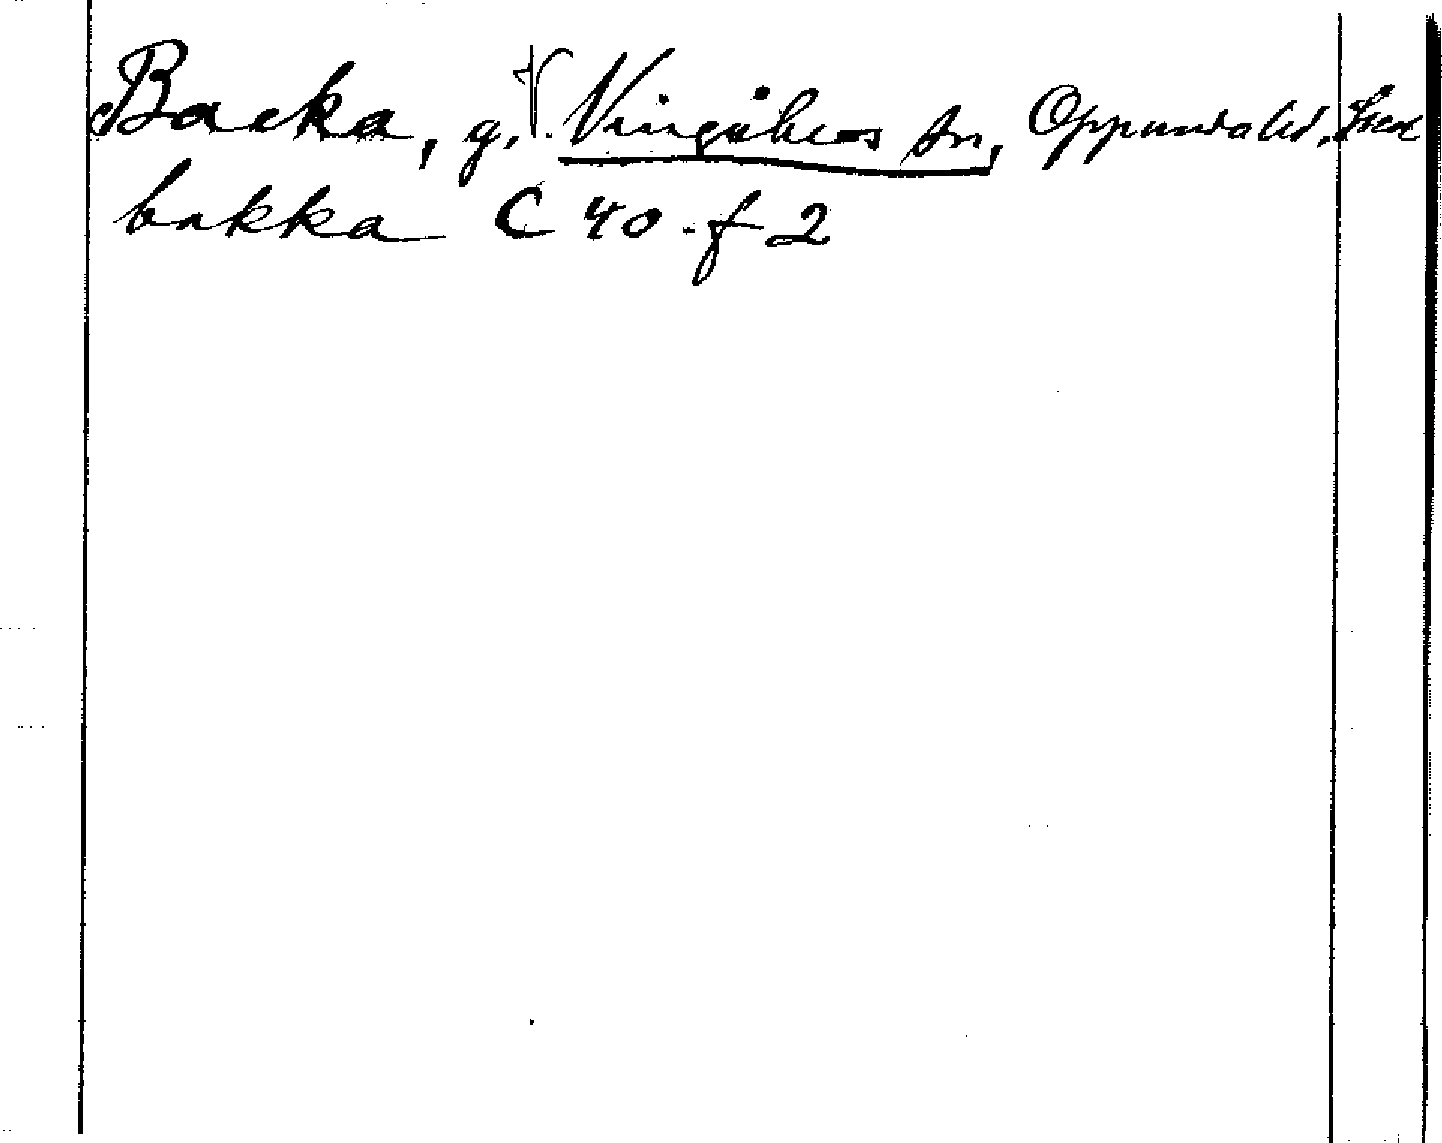 Backa, g. V. Vingåkers sn, Oppunda hd.
bakka C 40. f 2